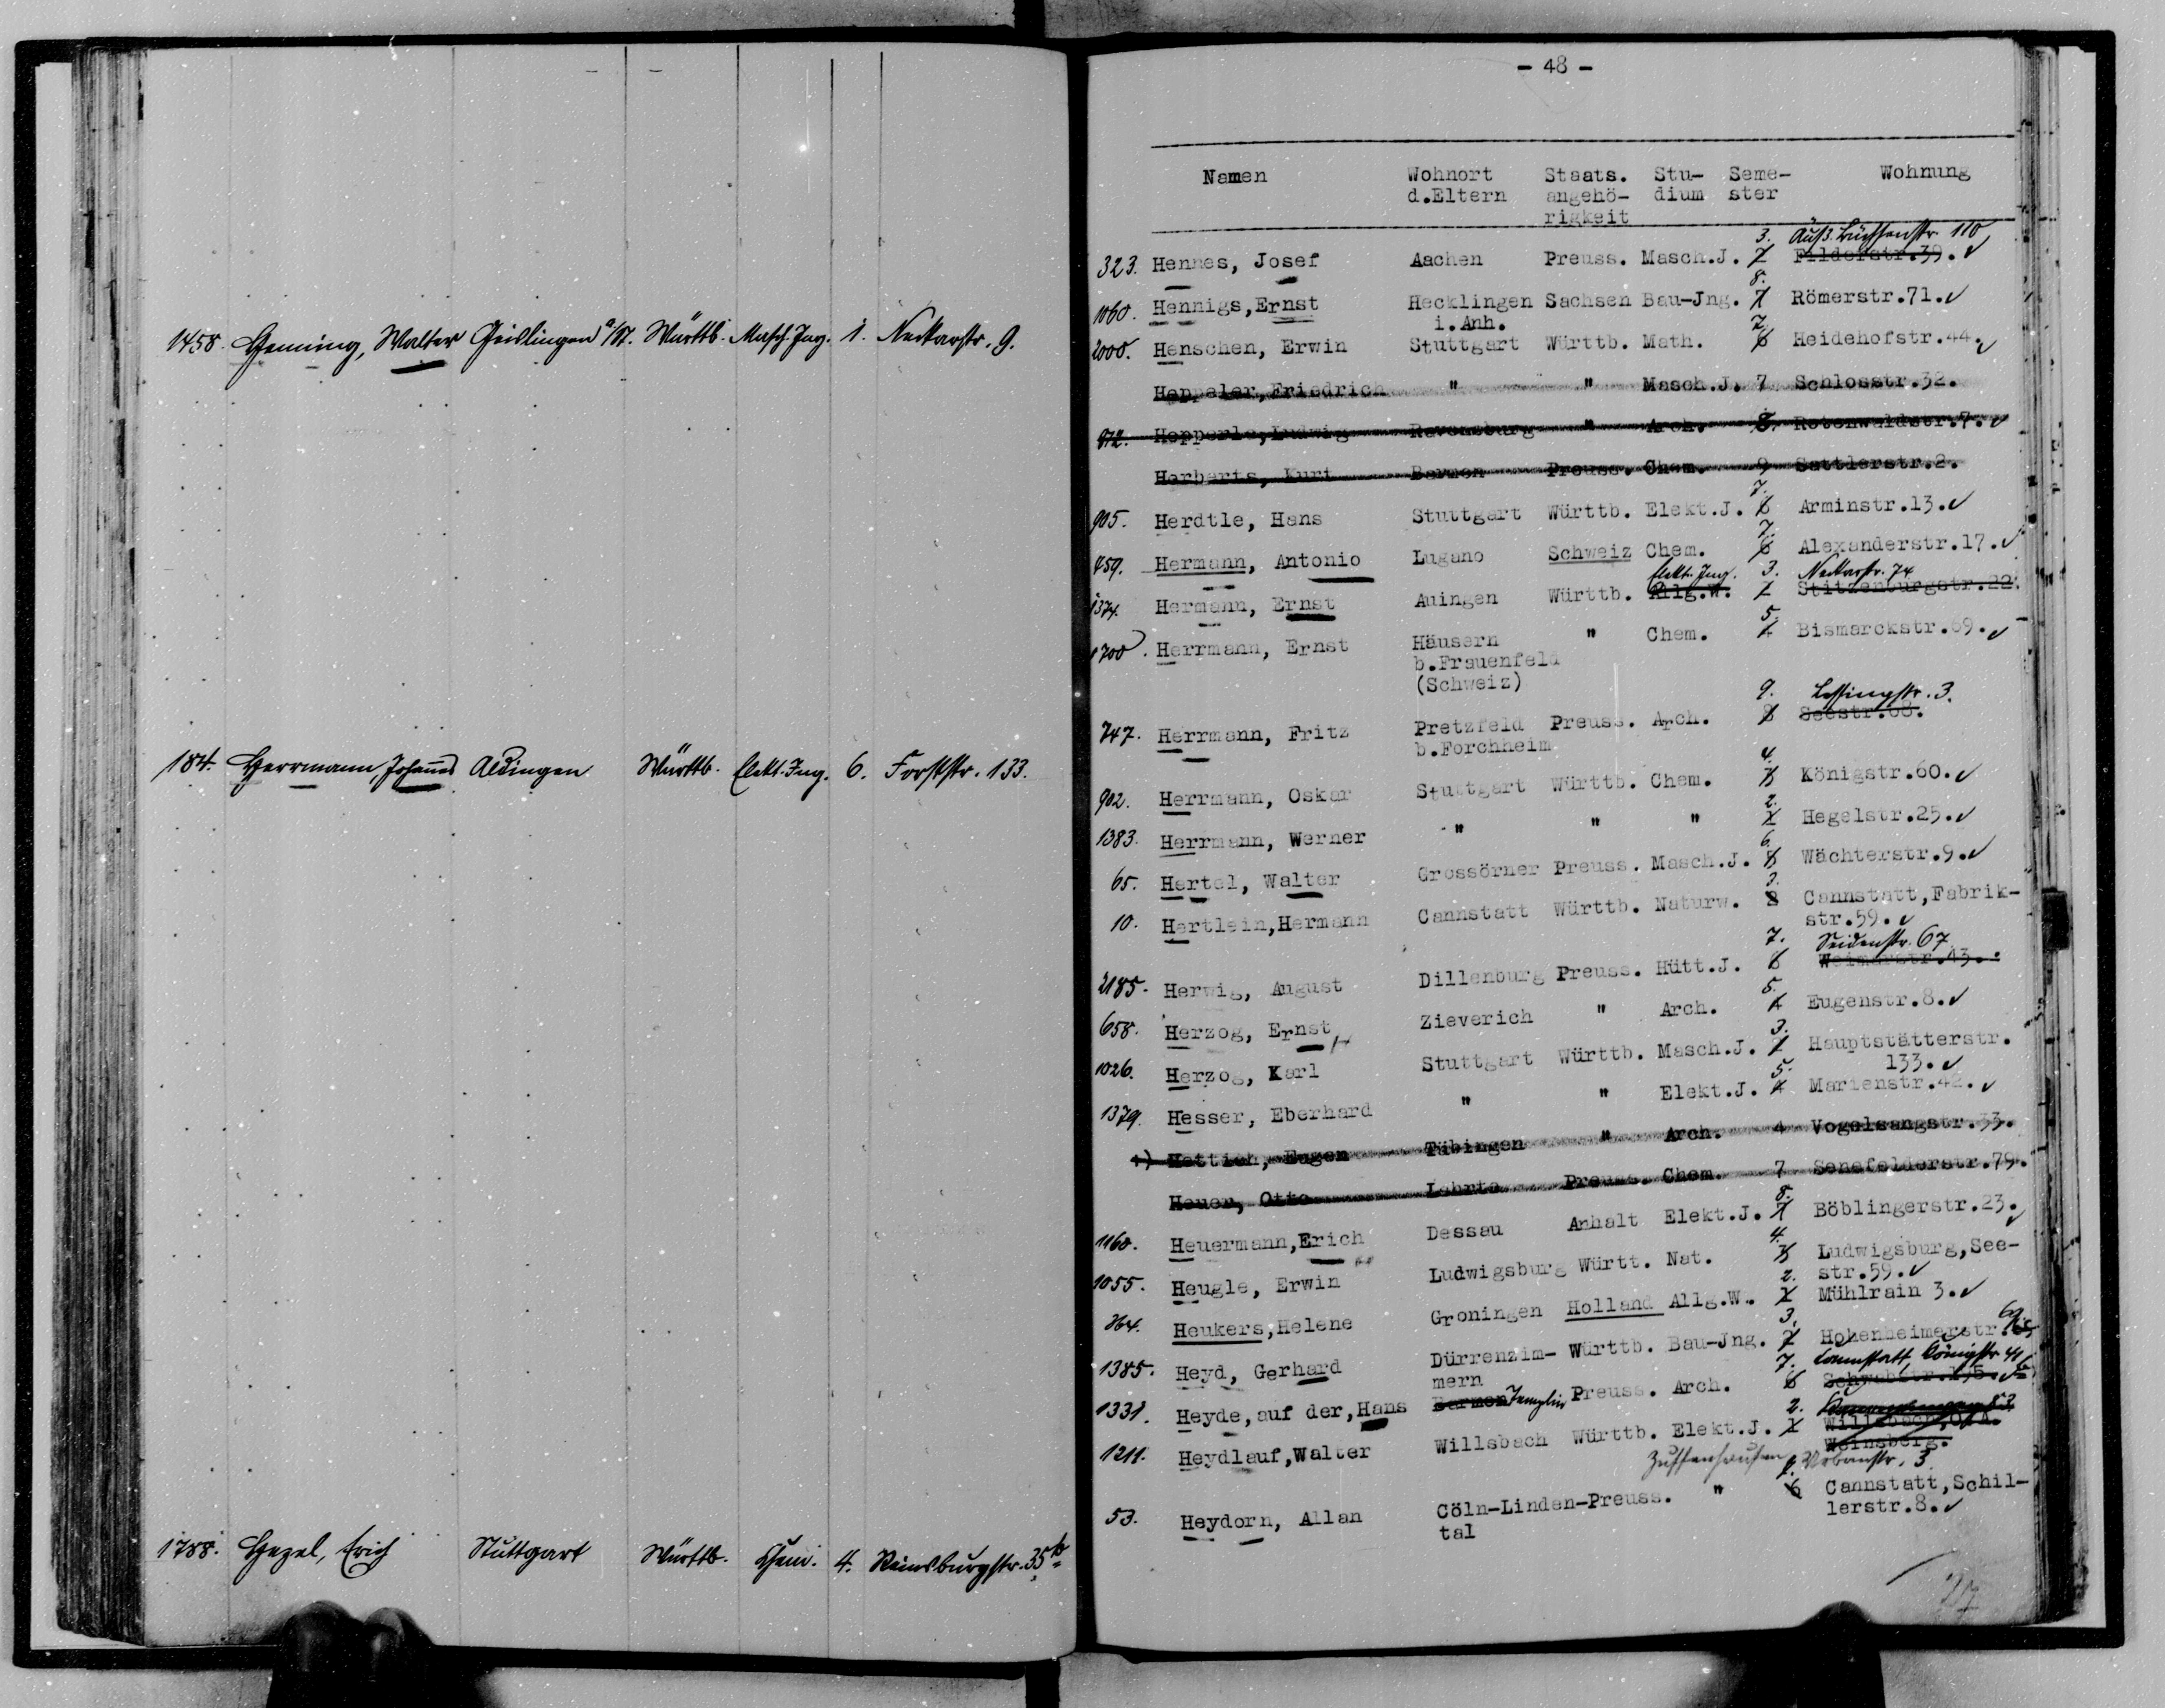 1458. Henning, Walter Geislingen a/St. Württb. Masch. Ing. 1. Neckarstr. 9.
184. Herrmann, Johannes Aldingen Württb. Elekt. Ing. 6. Forststr. 133.
1788. Hezel, Erich Stuttgart Württb. Chem. 4. Reinsburgstr. 35 b
- 48 -
Namen Wohnort Staats. Stu- Seme- Wohnung
d.Eltern angehö- dium ster
rigkeit
3. Äuß. Büchsenstr. 110
323. Hennes, Josef Aachen Preuss. Masch.J. Filderstr.39.
8.
1060. Hennigs,Ernst Hecklingen Sachsen Bau-Jng. 7 Römerstr.71.
i.Anh.
7.
2000. Henschen, Erwin Stuttgart Württb. Math. 6 Heidehofstr.44.
Heppeler,Friedrich " " Masch.J. 7 Schlosstr.32.
872. Hepperle,Ludwig Ravensburg " Arch. Rotenwaldstr.7.
Herberts, Kurt Barmen Preuss. Chem. 9 Sattlerstr.2.
7.
905. Herdtle, Hans Stuttgart Württb. Elekt.J. 6 Arminstr.13.
7.
459. Hermann, Antonio Lugano Schweiz Chem. 6 Alexanderstr.17.
Elekt. Ing. 3. Neckarstr. 74
1374. Hermann, Ernst Auingen Württb. Allg.W. Stitzenburgstr.22.
5.
1700. Herrmann, Ernst Häusern " Chem. 4 Bismarckstr.69.
b.Frauenfeld
(Schweiz)
9. Lessingstr. 3.
747. Herrmann, Fritz Pretzfeld Preuss. Arch. 8 Seestr.68.
b.Forchheim
4.
902. Herrmann, Oskar Stuttgart Württb. Chem. Königstr.60.
2.
1383. Herrmann, Werner " " " Hegelstr.25.
6.
65. Hertel, Walter Grossörner Preuss. Masch.J. Wächterstr.9.
10. Hertlein,Hermann Cannstatt Württb. Naturw. 8 Cannstatt,Fabrik-
str.59.
7. Seidenstr. 67
2185. Herwig, August Dillenburg Preuss. Hütt.J. 6 Weimarstr.43.
5.
658. Herzog, Ernst Zieverich " Arch. 4 Eugenstr.8.
3.
1026. Herzog, Karl Stuttgart Württb. Masch.J. Hauptstätterstr.
133.
5.
1379. Hesser, Eberhard " " Elekt.J. 4 Marienstr.42.
Hettich, Eugen Tübingen " Arch. 4 Vogelsangstr.33.
Heuer, Otto Lehrte Preuss. Chem. 7 Senefelderstr.79.
8.
1160. Heuermann,Erich Dessau Anhalt Elekt.J. 7 Böblingerstr.23.
4.
1055. Heugle, Erwin Ludwigsburg Württ. Nat. Ludwigsburg,See-
str.59.
2.
Heukers,Helene Groningen Holland Allg.W. Mühlrain 3.
3.
1385. Heyd, Gerhard Dürrenzim- Württb. Bau-Jng. Hohenheimerstr.
mern
7. Cannstatt, Königstr. 41
1331. Heyde,auf der,Hans Barmen Templin Preuss. Arch. 6
2.
1211. Heydlauf,Walter Willsbach Württb. Elekt.J. Willsbach,O.A.
Weinsberg.
Zuffenhausen, Urbanstr. 3
53. Heydorn, Allan Cöln-Linden-Preuss. " 6 Cannstatt,Schil-
tal lerstr.8.